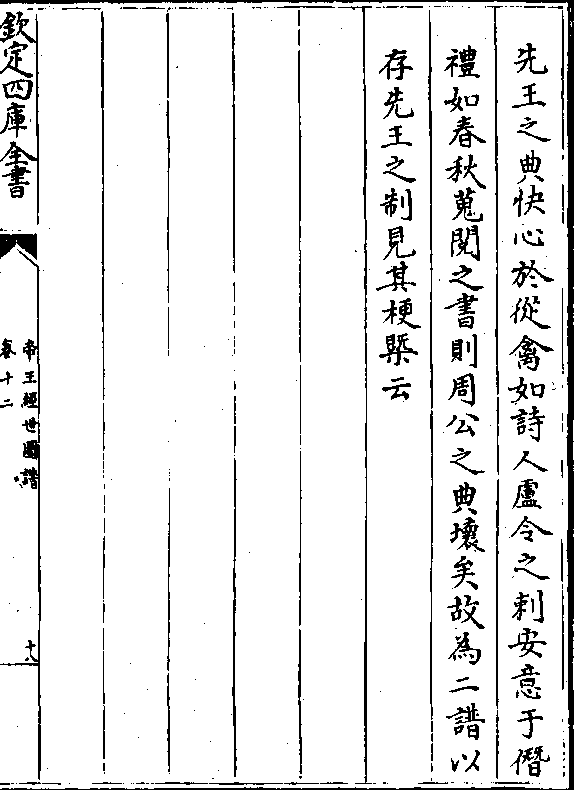 先王之典快心於從禽如詩人盧令之刺安意于僭
禮如春秋蒐閱之書則周公之典壞矣故為二譜以
存先王之制見其梗槩云
欽定四庫全書
帝王經世圖譜
卷十二
十八